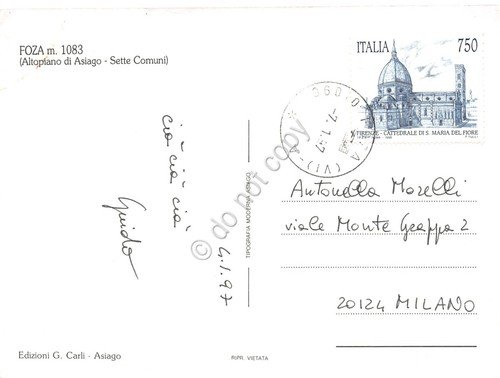 FOZA m. 1083
(Altopiano di Asiago - Sette Comuni)
ITALIA 750
FIRENZE - CATTEDRALE DI S. MARIA DEL FIORE
36010 FOZA (VI)
-7.1.97
ciao ciao ciao
Guido
4.1.97
do not copy
TIPOGRAFIA MODERNA ASIAGO
Antonella Morelli
viale Monte Grappa 2
20124 MILANO
Edizioni G. Carli - Asiago
RIPR. VIETATA